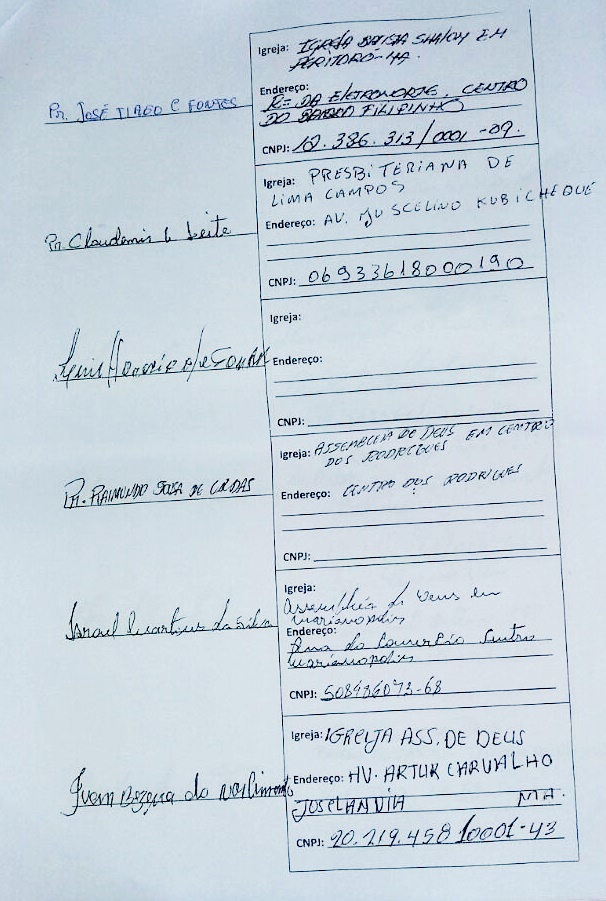 Igreja: IGREJA BATISTA SHALOM EM
PERITORO-MA.
Pr. JOSÉ TIAGO C FONTES
Endereço:
R= DA ELETRONORTE, CENTRO
DO BAIRRO FILIPINHO
CNPJ: 10.386.313/0001-09.
Igreja: PRESBITERIANA DE
LIMA CAMPOS
Pr. Claudemir L Leite
Endereço: AV. JUSCELINO KUBICHEQUE
CNPJ: 06933618000190
Igreja:
Endereço:
CNPJ:
Igreja: ASSEMBLEIA DE DEUS EM CENTRO
DOS RODRIGUES
Pr. RAIMUNDO SOSA DE CALDAS
Endereço: CENTRO DOS RODRIGUES
CNPJ:
Igreja:
Assembléia de Deus em
Marianopolis
Israel Martins da Silva
Endereço:
Rua do Comercio Centro
Marianopolis
CNPJ: 508486073-68
Igreja: IGREIJA ASS. DE DEUS
Ivam Bezerra do Nascimento
Endereço: AV. ARTUR CARVALHO
JOSELANDIA MA.
CNPJ: 20.219.458/0001-43